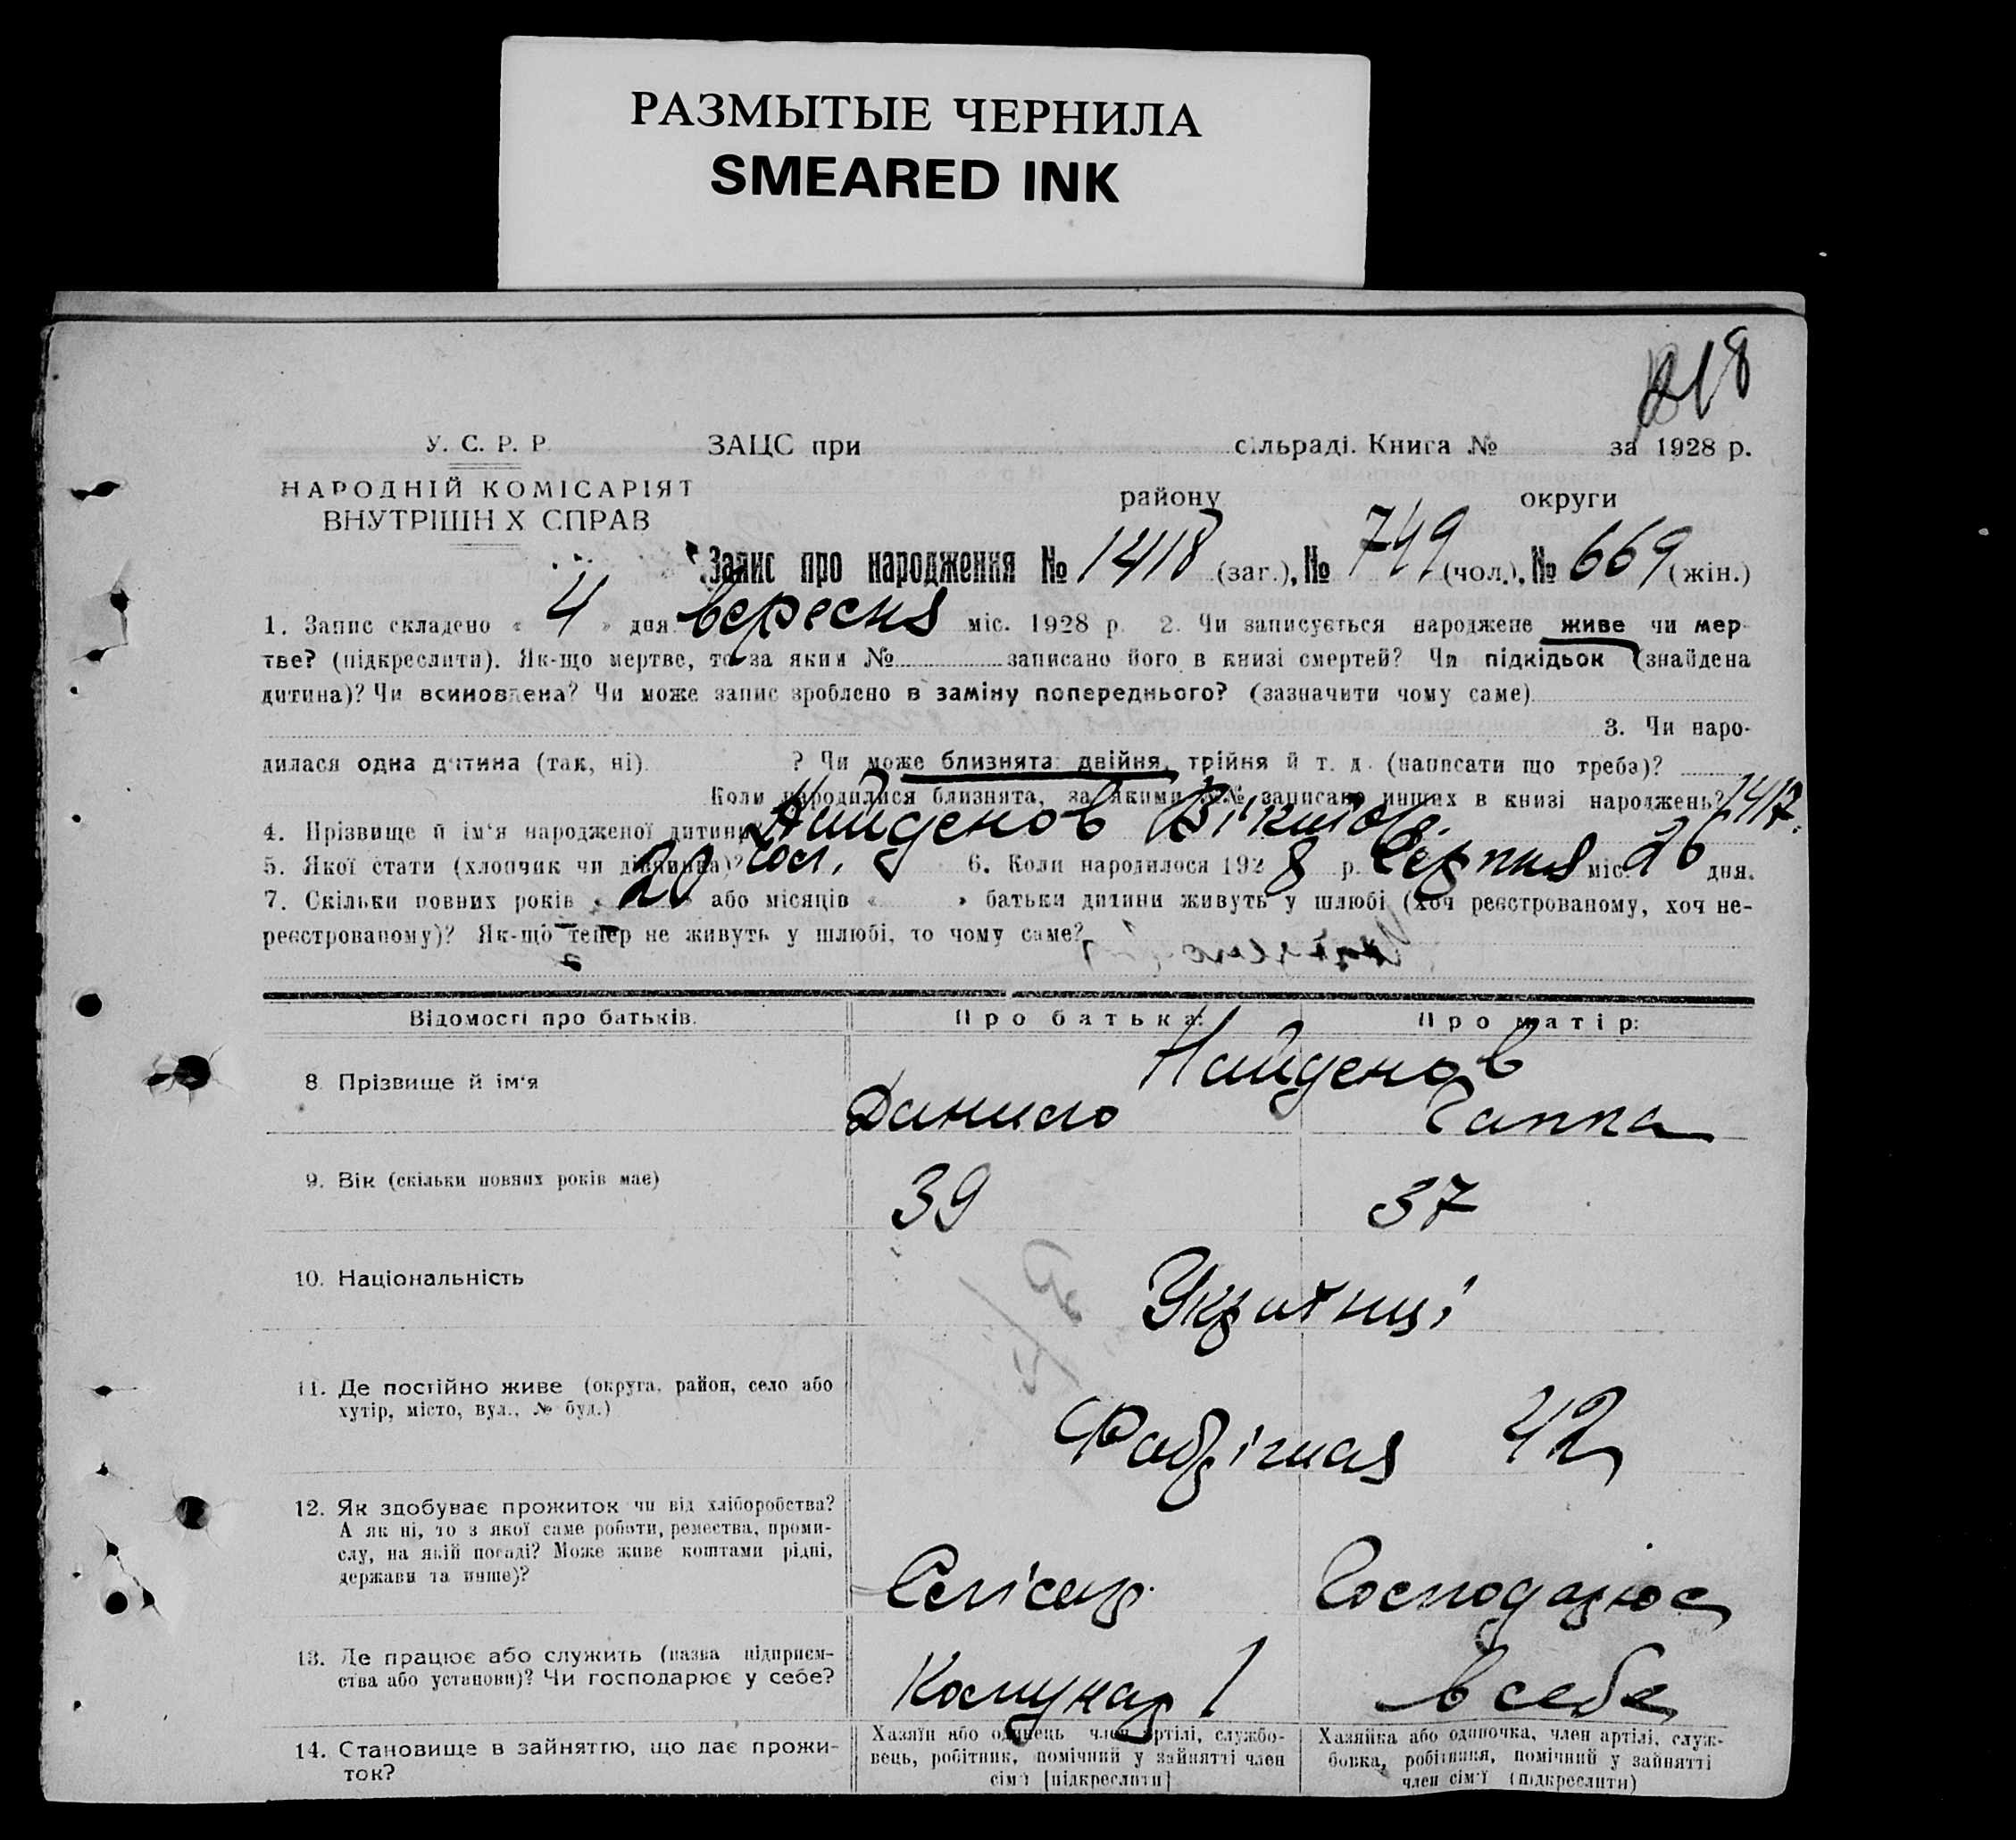 РАЗМЫТЫЕ ЧЕРНИЛА
SMEARED INK
218
У. С. Р. Р. ЗАЦС при сільраді. Книга № за 1928 р.
НАРОДНІЙ КОМІСАРІЯТ
ВНУТРІШН Х СПРАВ
району округи
Запис про народження № 1418 (заг.), № 749 (чол.), № 669 (жін.)
1. Запис складено « 4 » дня вересня міс. 1928 р. 2. Чи записується народжене живе чи мер-
тве? (підкреслити). Як-що мертве, то за яким № записано його в книзі смертей? Чи підкідьок (знайдена
дитина)? Чи всиновлена? Чи може запис зроблено в заміну попереднього? (зазначити чому саме)
3. Чи наро-
дилася одна дитина (так, ні) ? Чи може близнята: двійня, трійня й т. д. (написати що треба)?
Коли народилися близнята, за якими №№ записано инших в книзі народжень? 1417.
4. Прізвище й ім'я народженої дитини Найденов Віктор.
5. Якої стати (хлопчик чи дівчинка)? чол. 6. Коли народилося 1928 р. Серпня міс. 26 дня.
7. Скільки повних років « 20 » або місяців « » батьки дитини живуть у шлюбі (хоч реєстрованому, хоч не-
реєстрованому)? Як-що тепер не живуть у шлюбі, то чому саме?
Відомості про батьків. Про батька: Про матір:
Найденов
8. Прізвище й ім'я Данило Ганна
9. Вік (скільки повних років має) 39 37
10. Національність Українці
11. Де постійно живе (округа, район, село або
хутір, місто, вул., № буд.) Фабрічная 42
12. Як здобуває прожиток чи від хліборобства?
А як ні, то з якої саме роботи, ремества, проми-
слу, на якій посаді? Може живе коштами рідні,
держави та инше)? Слісарь Господарює
13. Де працює або служить (назва підприєм-
ства або установи)? Чи господарює у себе? Комунар 1 в себе
14. Становище в зайняттю, що дає прожи-
ток?
Хазяїн або одинець член артілі, службо-
вець, робітник, помічний у зайнятті член
сім'ї [підкреслити]
Хазяйка або одиночка, член артілі, служ-
бовка, робітниця, помічний у зайнятті
член сім'ї (підкреслити)